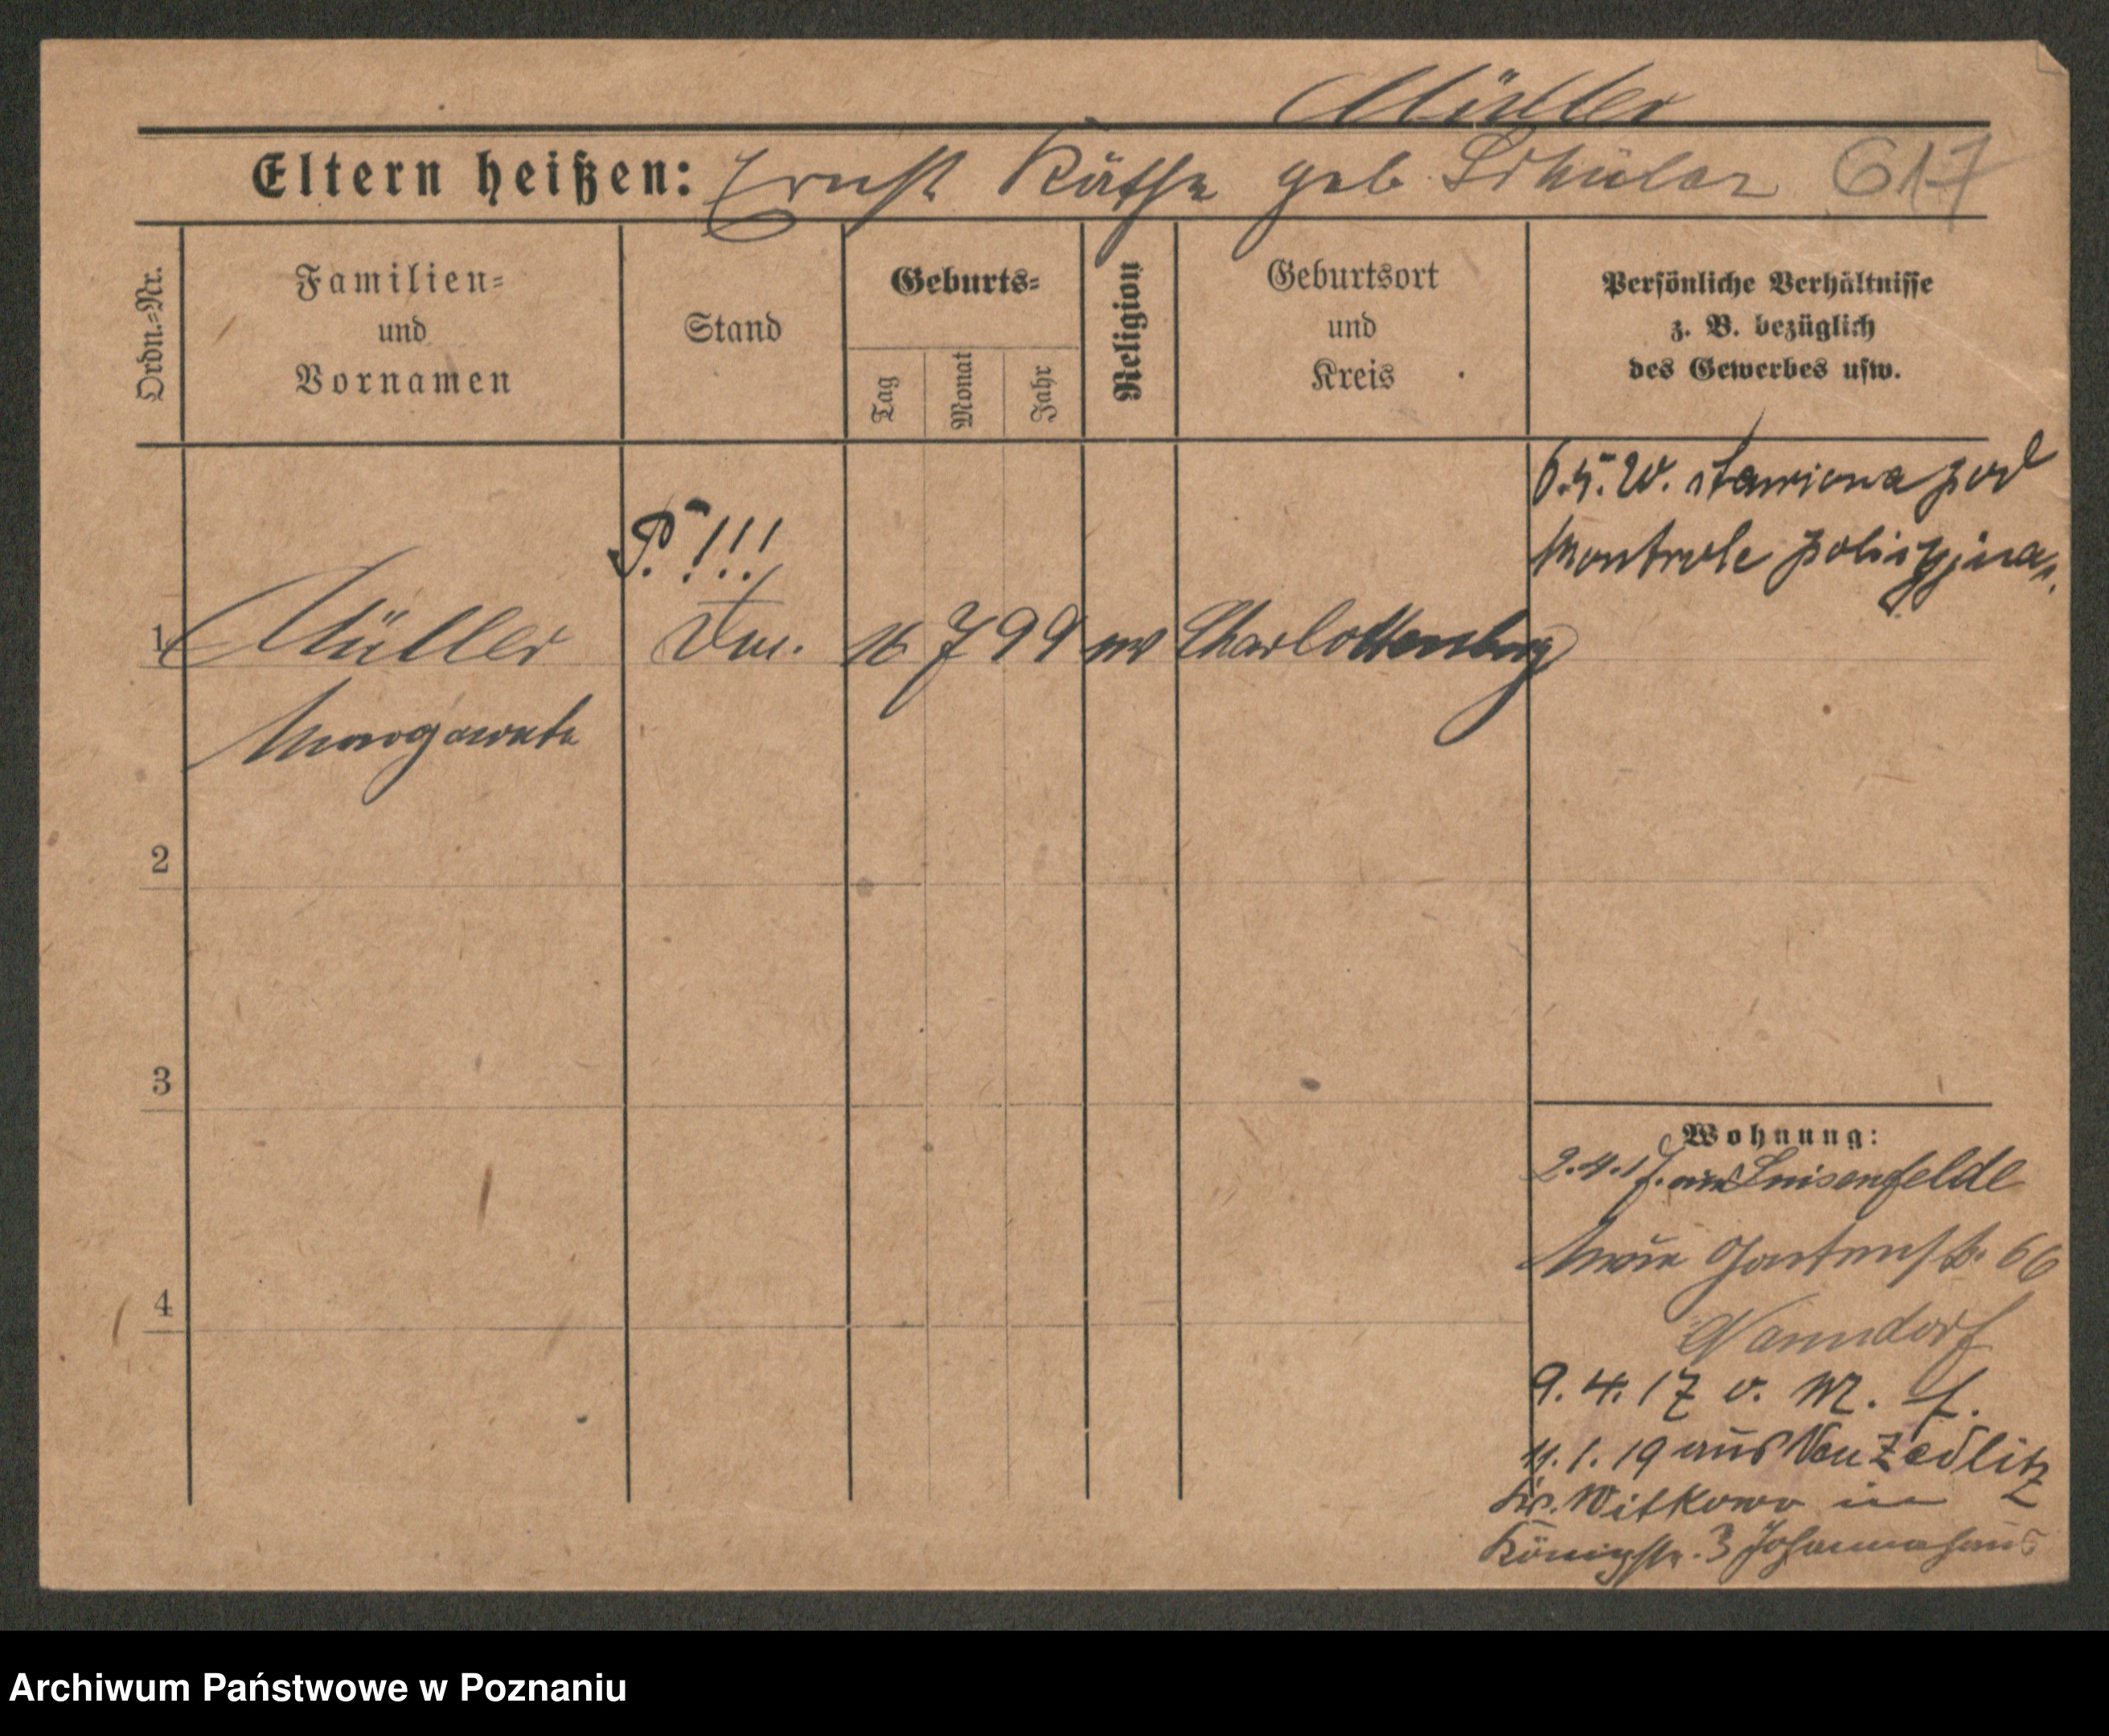 Müller
Eltern heißen: Ernst Käthe geb Schüler 617
Ordn.-Nr.
Familien-
und
Vornamen
Stand
Geburts-
Tag
Monat
Jahr
Religion
Geburtsort
und
Kreis
Persönliche Verhältnisse
z. B. bezüglich
des Gewerbes usw.
6.5.20. stawiona pod
kontrole policyjna.
P. !!!
1 Müller 16 7 99 Charlottenburg
Margarete
2
3
4
Wohnung:
2.4.17. aus Luisenfelde
Neue Gartenstr. 66
9.4.17 v. M. f.
11.1.19 aus Neu Zedlitz
Kr. Witkowo in
Königstr. 3 Johannahaus
Archiwum Państwowe w Poznaniu